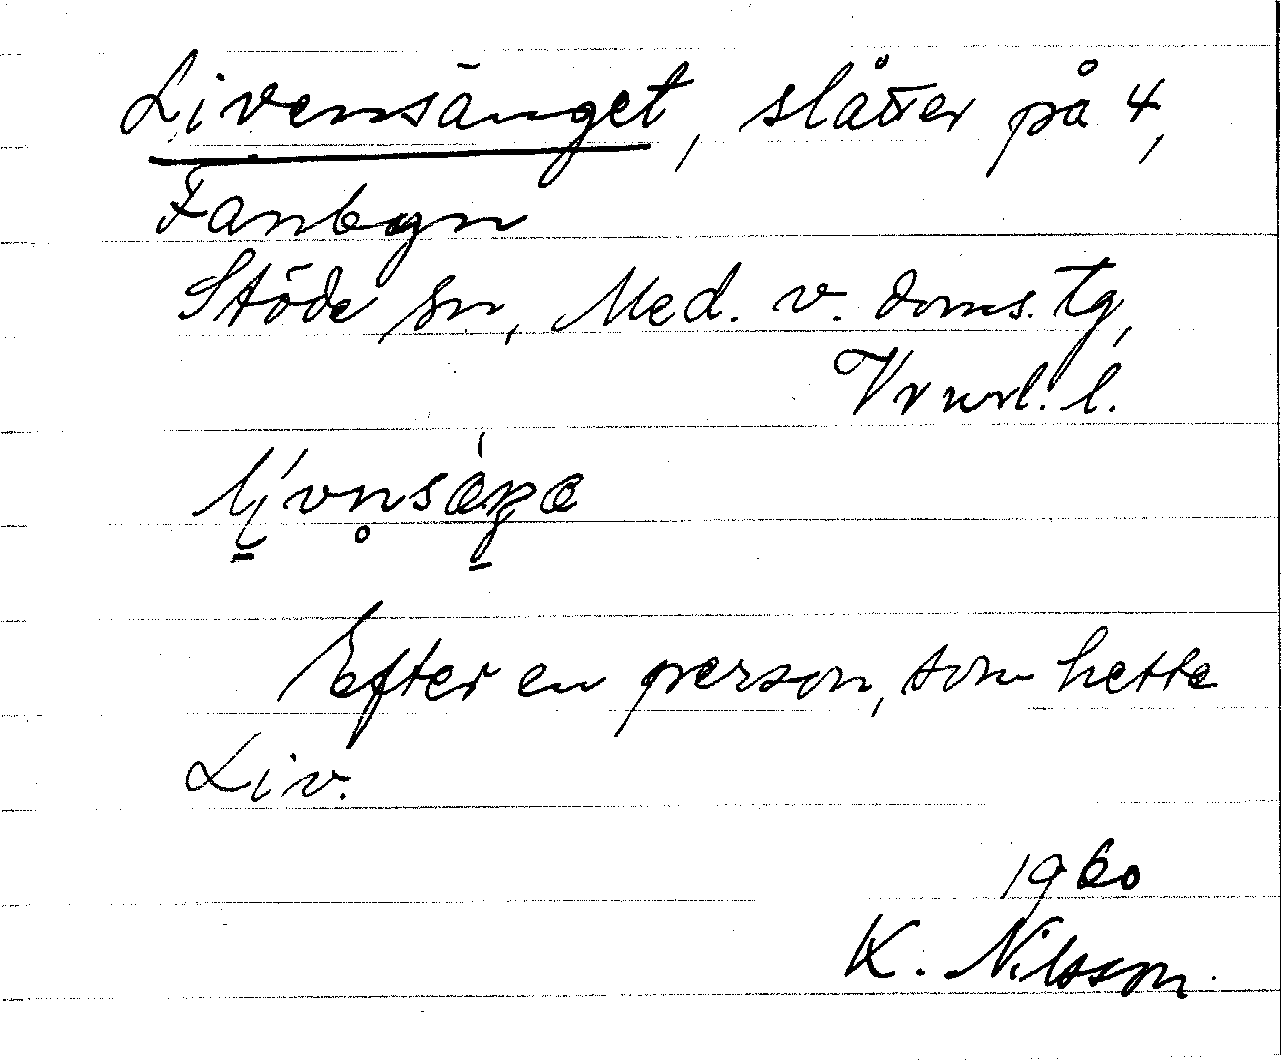 Livensänget, slåtter på 4,
Fanbyn
Stöde sn, Med. v. doms. tg,
Vrnrl. l.
Efter en person, som hette
Liv.
1960
K. Nilsson.